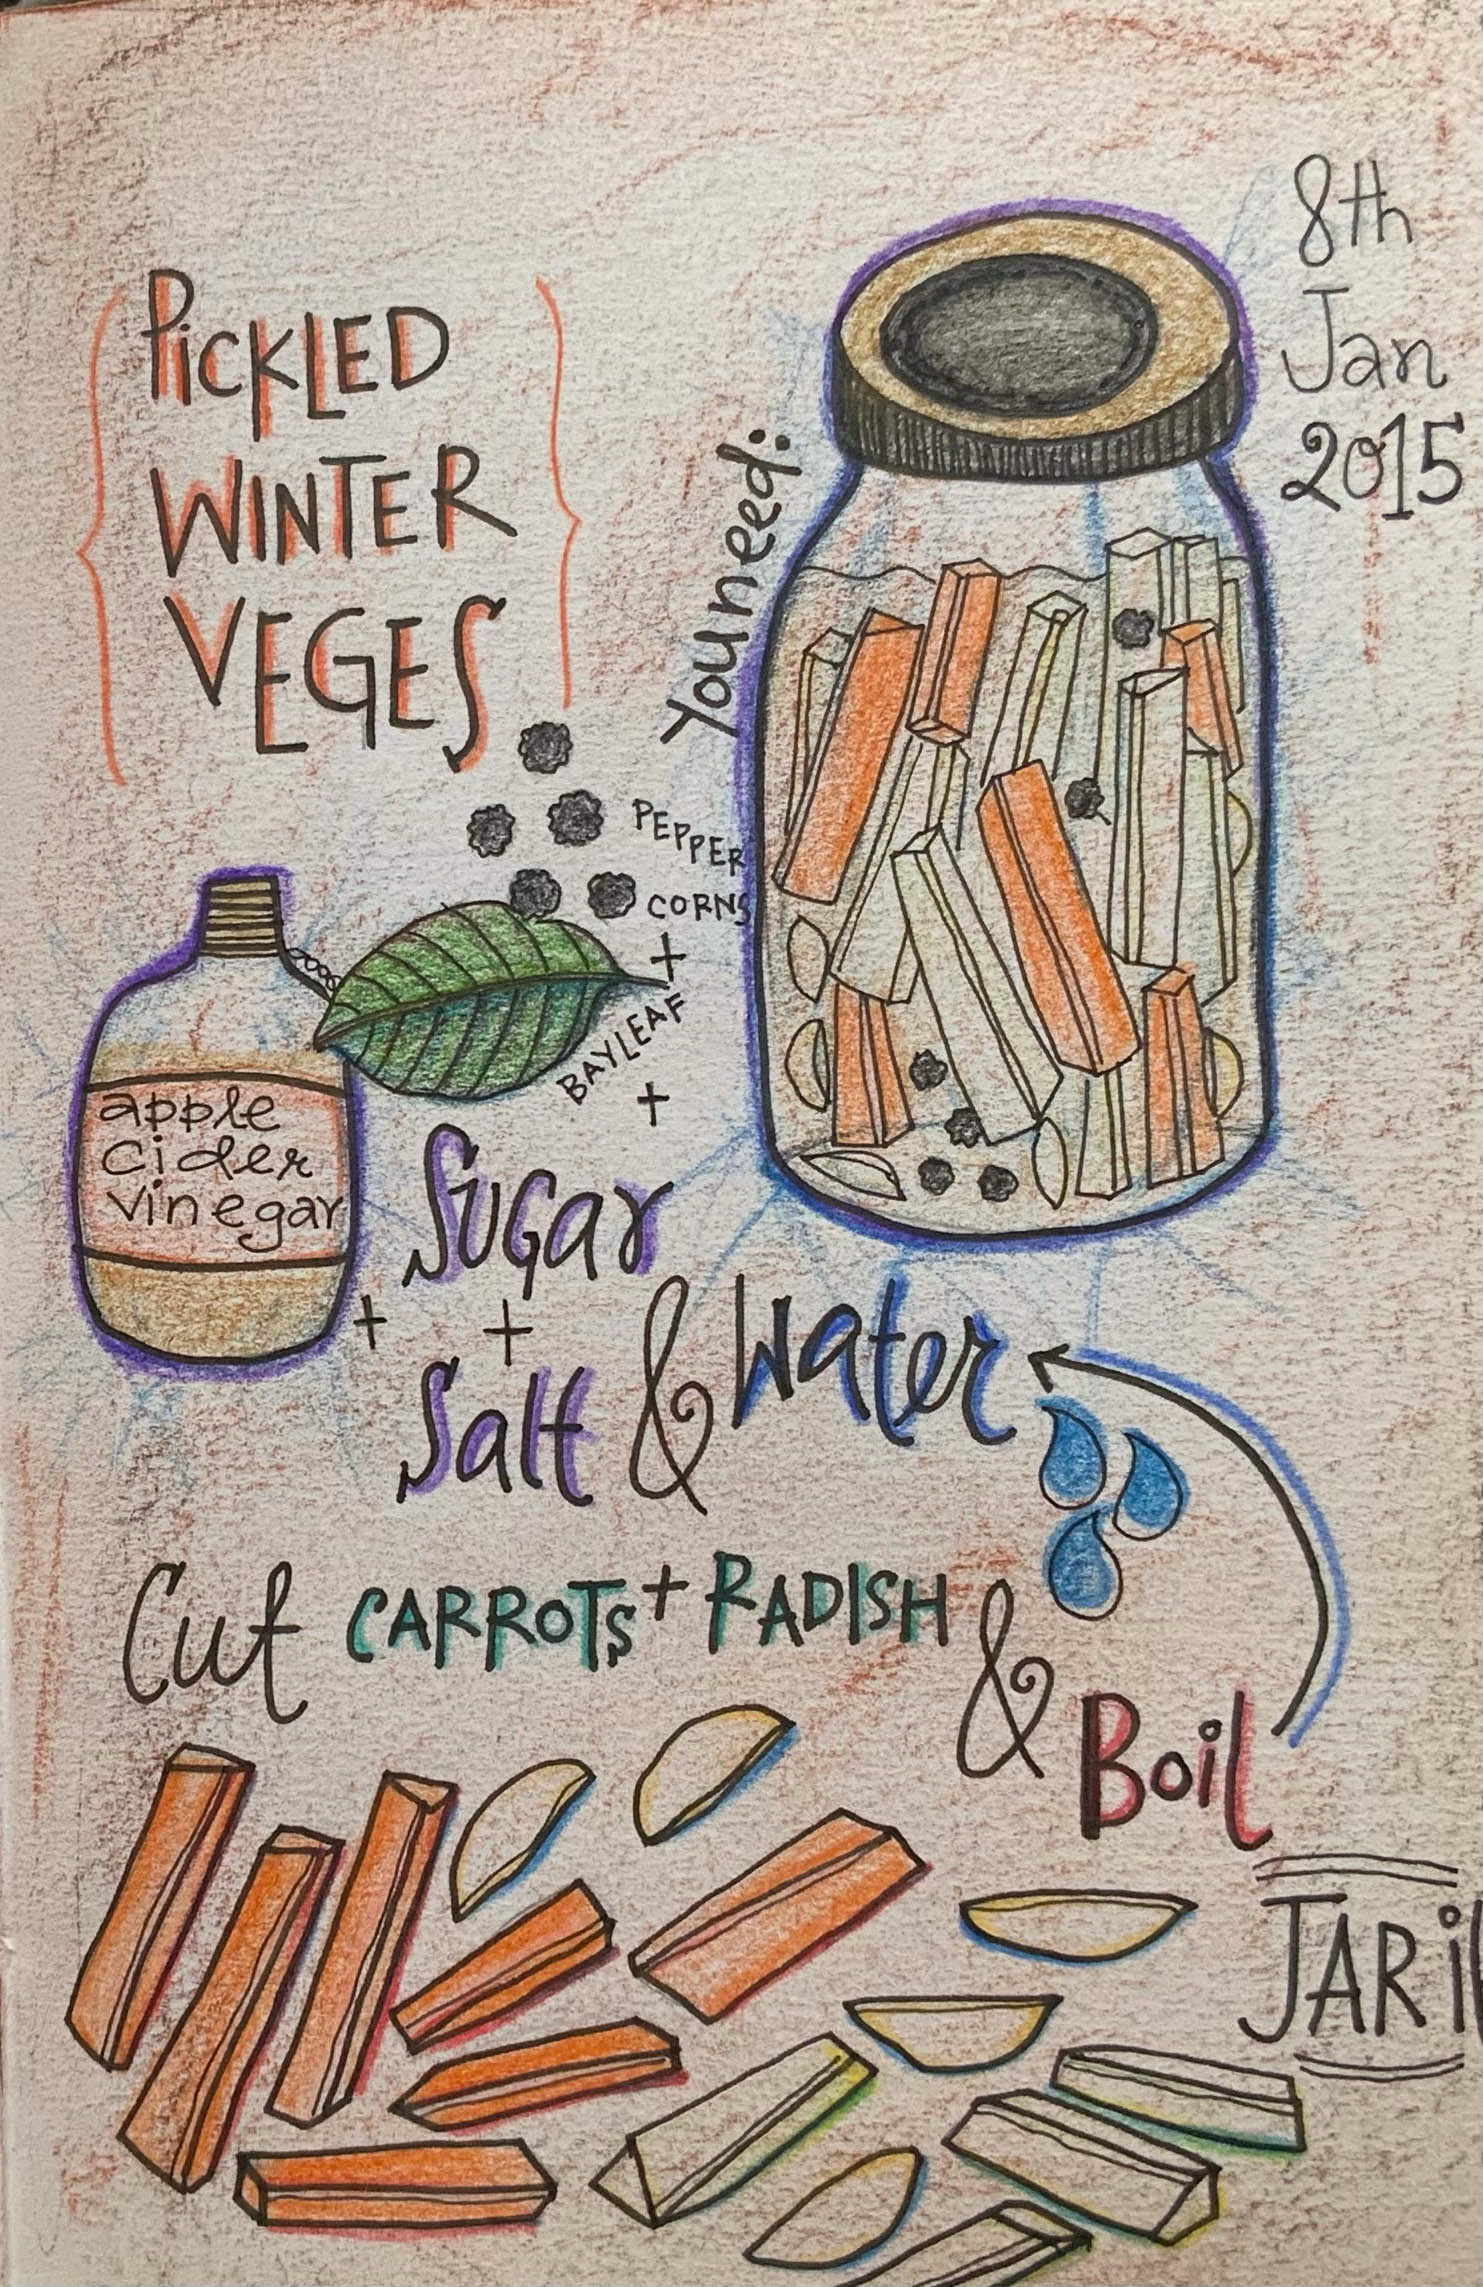 8th
Jan
2015
PICKLED
WINTER
VEGES
You need:
PEPPER
CORNS
+
BAYLEAF
+
apple
cider
vinegar
Sugar
+ +
Salt & Water
Cut CARROTS + RADISH
& Boil
JAR